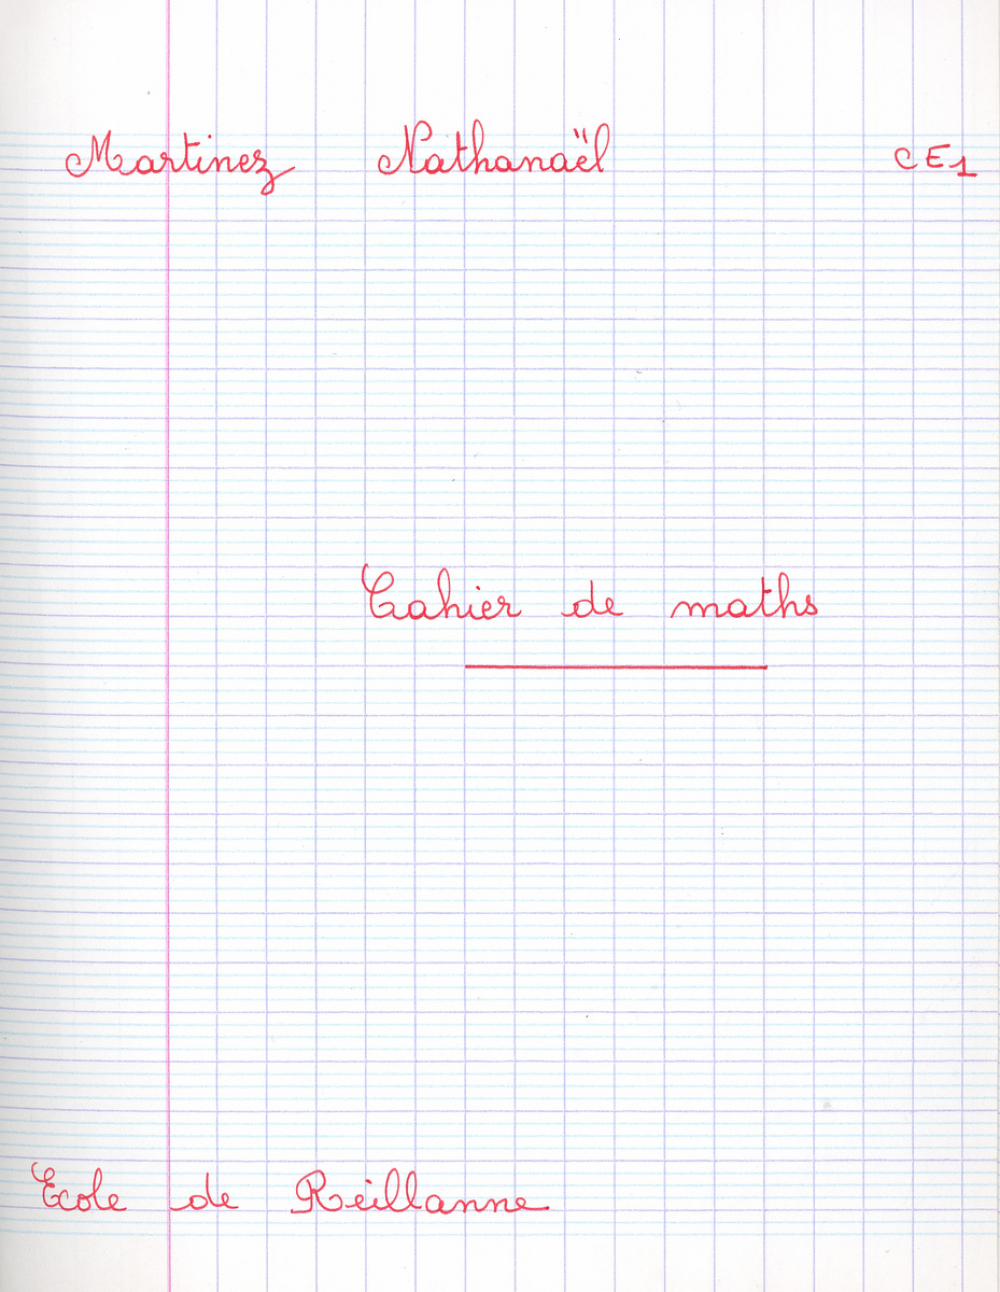 Martinez Nathanaël CE1
Cahier de maths
Ecole de Reillanne